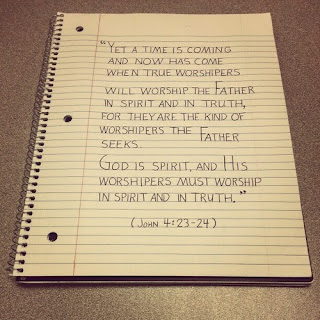 “Yet a time is coming
and now has come
when true worshipers
will worship the Father
in spirit and in truth,
for they are the kind of
worshipers the Father
seeks.
God is spirit, and His
worshipers must worship
in spirit and in truth.”
(John 4:23-24)